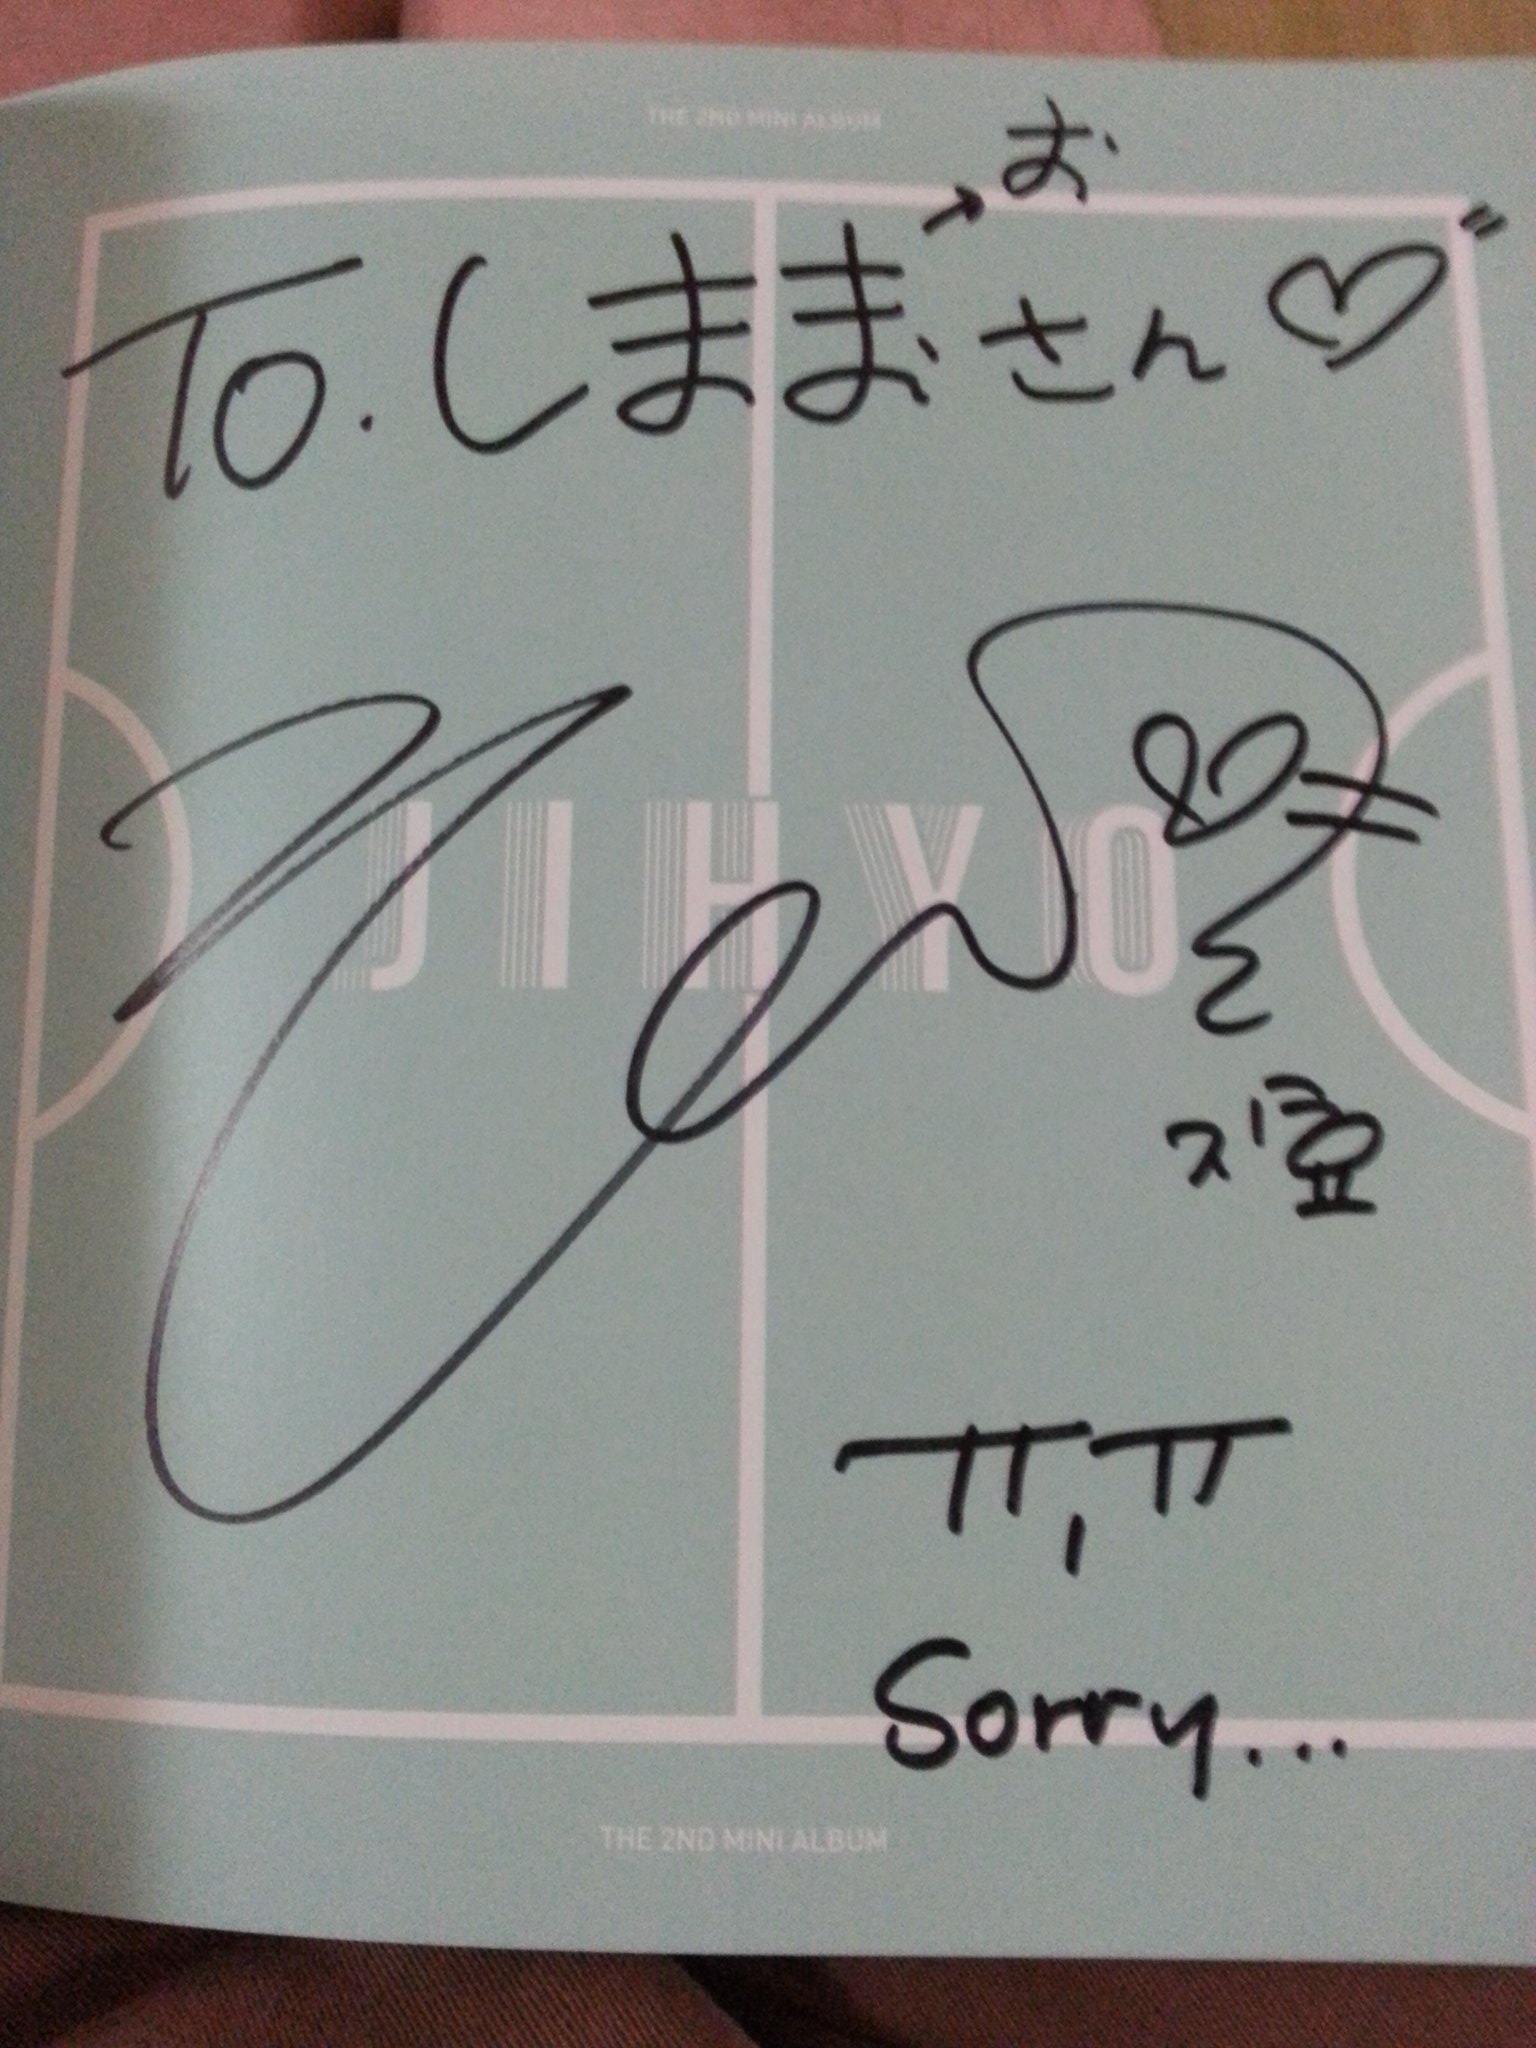 THE 2ND MINI ALBUM
→お
To. しまおさん♡
JIHYO
지효
ㅠ,ㅠ
Sorry...
THE 2ND MINI ALBUM